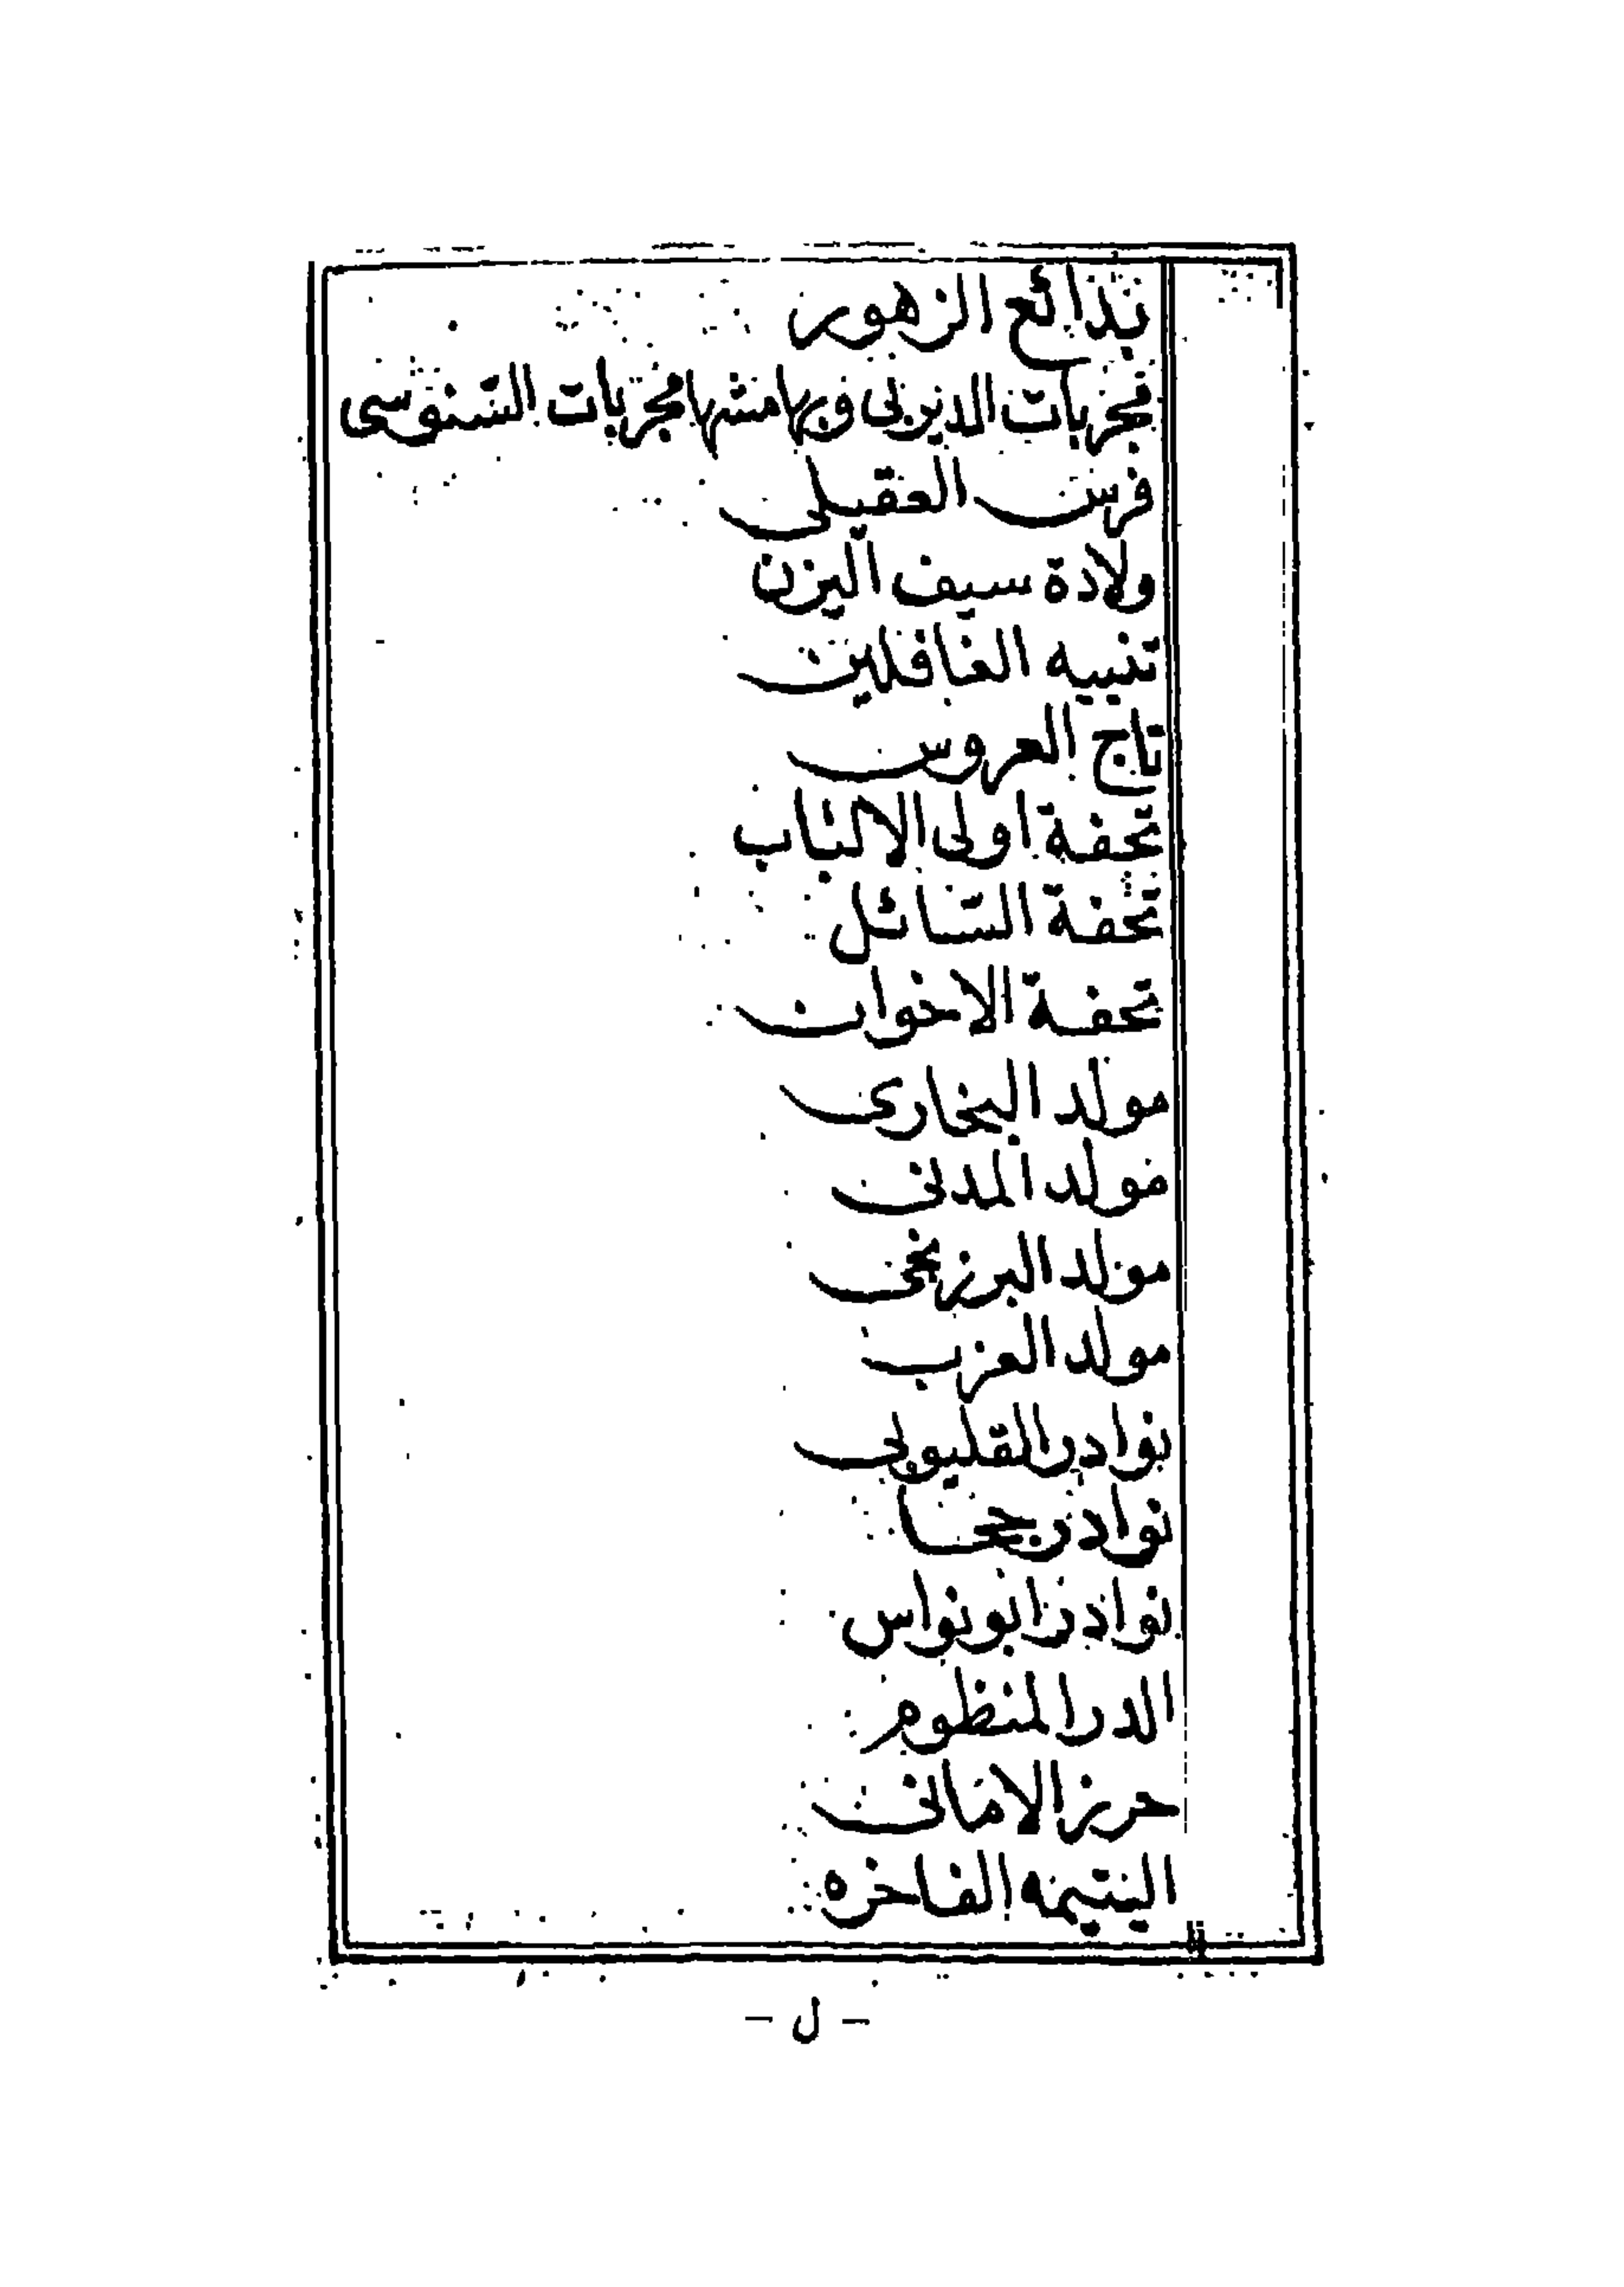 بدائع الزهور
مجربات الديربى وبهامشها مجربات السنوسى
فرس العقيلى
ولادة سيف اليزن
تنبيه الغافلين
تاج العروس
تحفة اولى الالباب
تحفة السائل
تحفة الاخوان
مولد البخارى
مولد المدنى
مولد البرزنجى
مولد العزب
نوادر القليوبى
نوادر جحا
نوادر ابو نواس
الدر المنظوم
حرز الامانى
اليتيمه الفاخره
- ل -